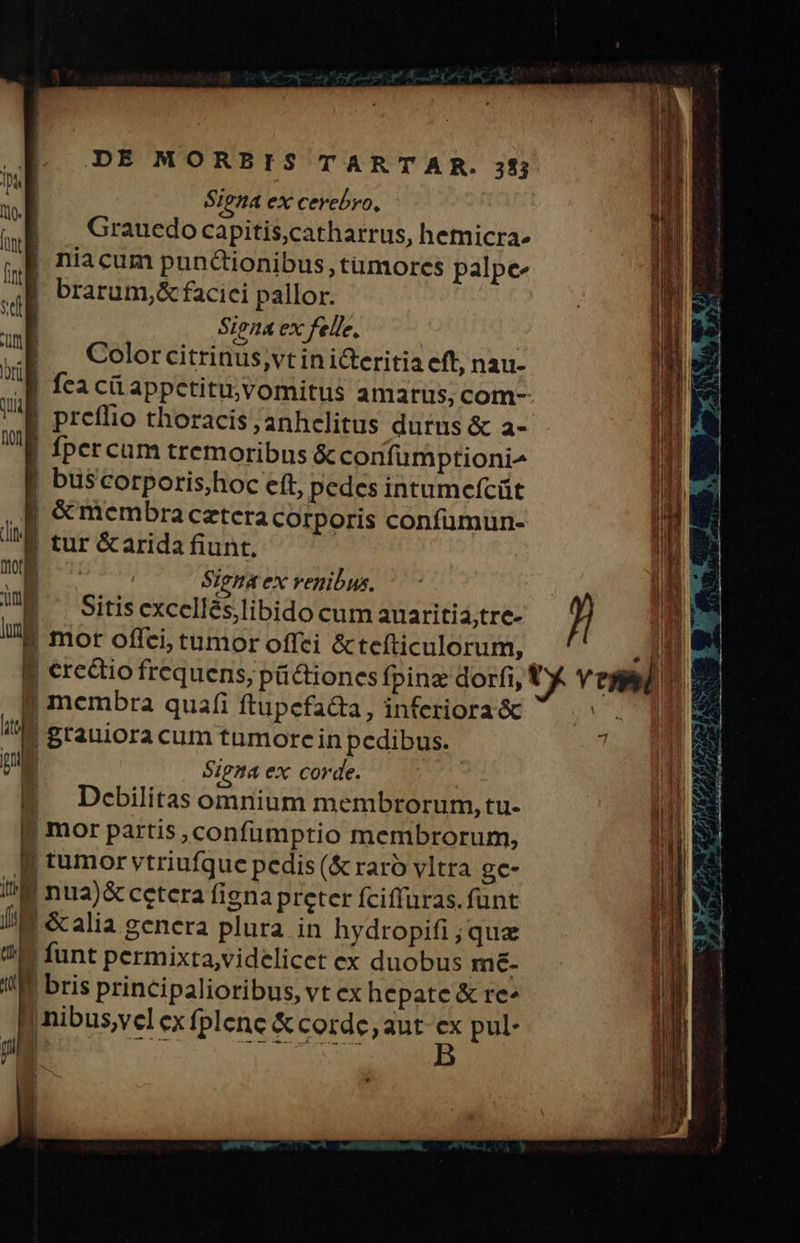 DE MORBIS TARTAR. 383
Signa ex cerebro.
Grauedo capitis,catharrus, hemicra-
nia cum punctionibus, tumores palpe-
brarum,& faciei pallor.
Signa ex felle.
Color citrinus,vt in icteritia eſt, nau-
ſea cũ appetitu,vomitus amarus, com-
preſſio thoracis, anhelitus durus & a-
ſper cum tremoribus & conſumptioni-
bus corporis,hoc eſt, pedes intumeſcũt
& membra cætera corporis conſumun-
tur & arida fiunt.
Signa ex renibus.
Sitis excellẽs,libido cum auaritia,tre-
mor oſſei, tumor oſſei & teſticulorum,
erectio frequens, pũctiones ſpinæ dorſi,
membra quaſi ſtupefacta, inferiora &
grauiora cum tumore in pedibus.
Signa ex corde.
Debilitas omnium membrorum, tu-
mor partis, conſumptio membrorum,
tumor vtriuſque pedis (& rarò vltra ge-
nua) & cętera ſigna pręter ſciſſuras. ſunt
& alia genera plura in hydropiſi, quæ
ſunt permixta,videlicet ex duobus mẽ-
bris principalioribus, vt ex hepate & re-
nibus,vel ex ſplene & corde, aut ex pul-
B